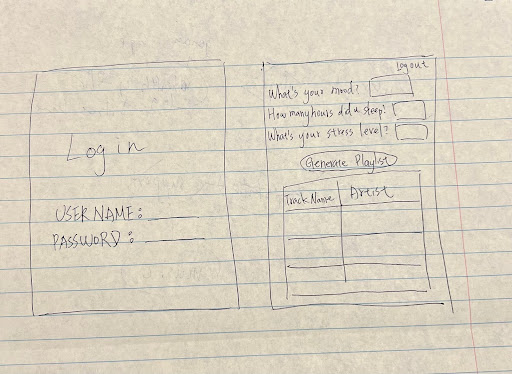 Log in
USERNAME:
PASSWORD:
Logout
What's your mood?
How many hours d d u sleep?
What's your stress level?
Generate Playlist
Track Name Artist